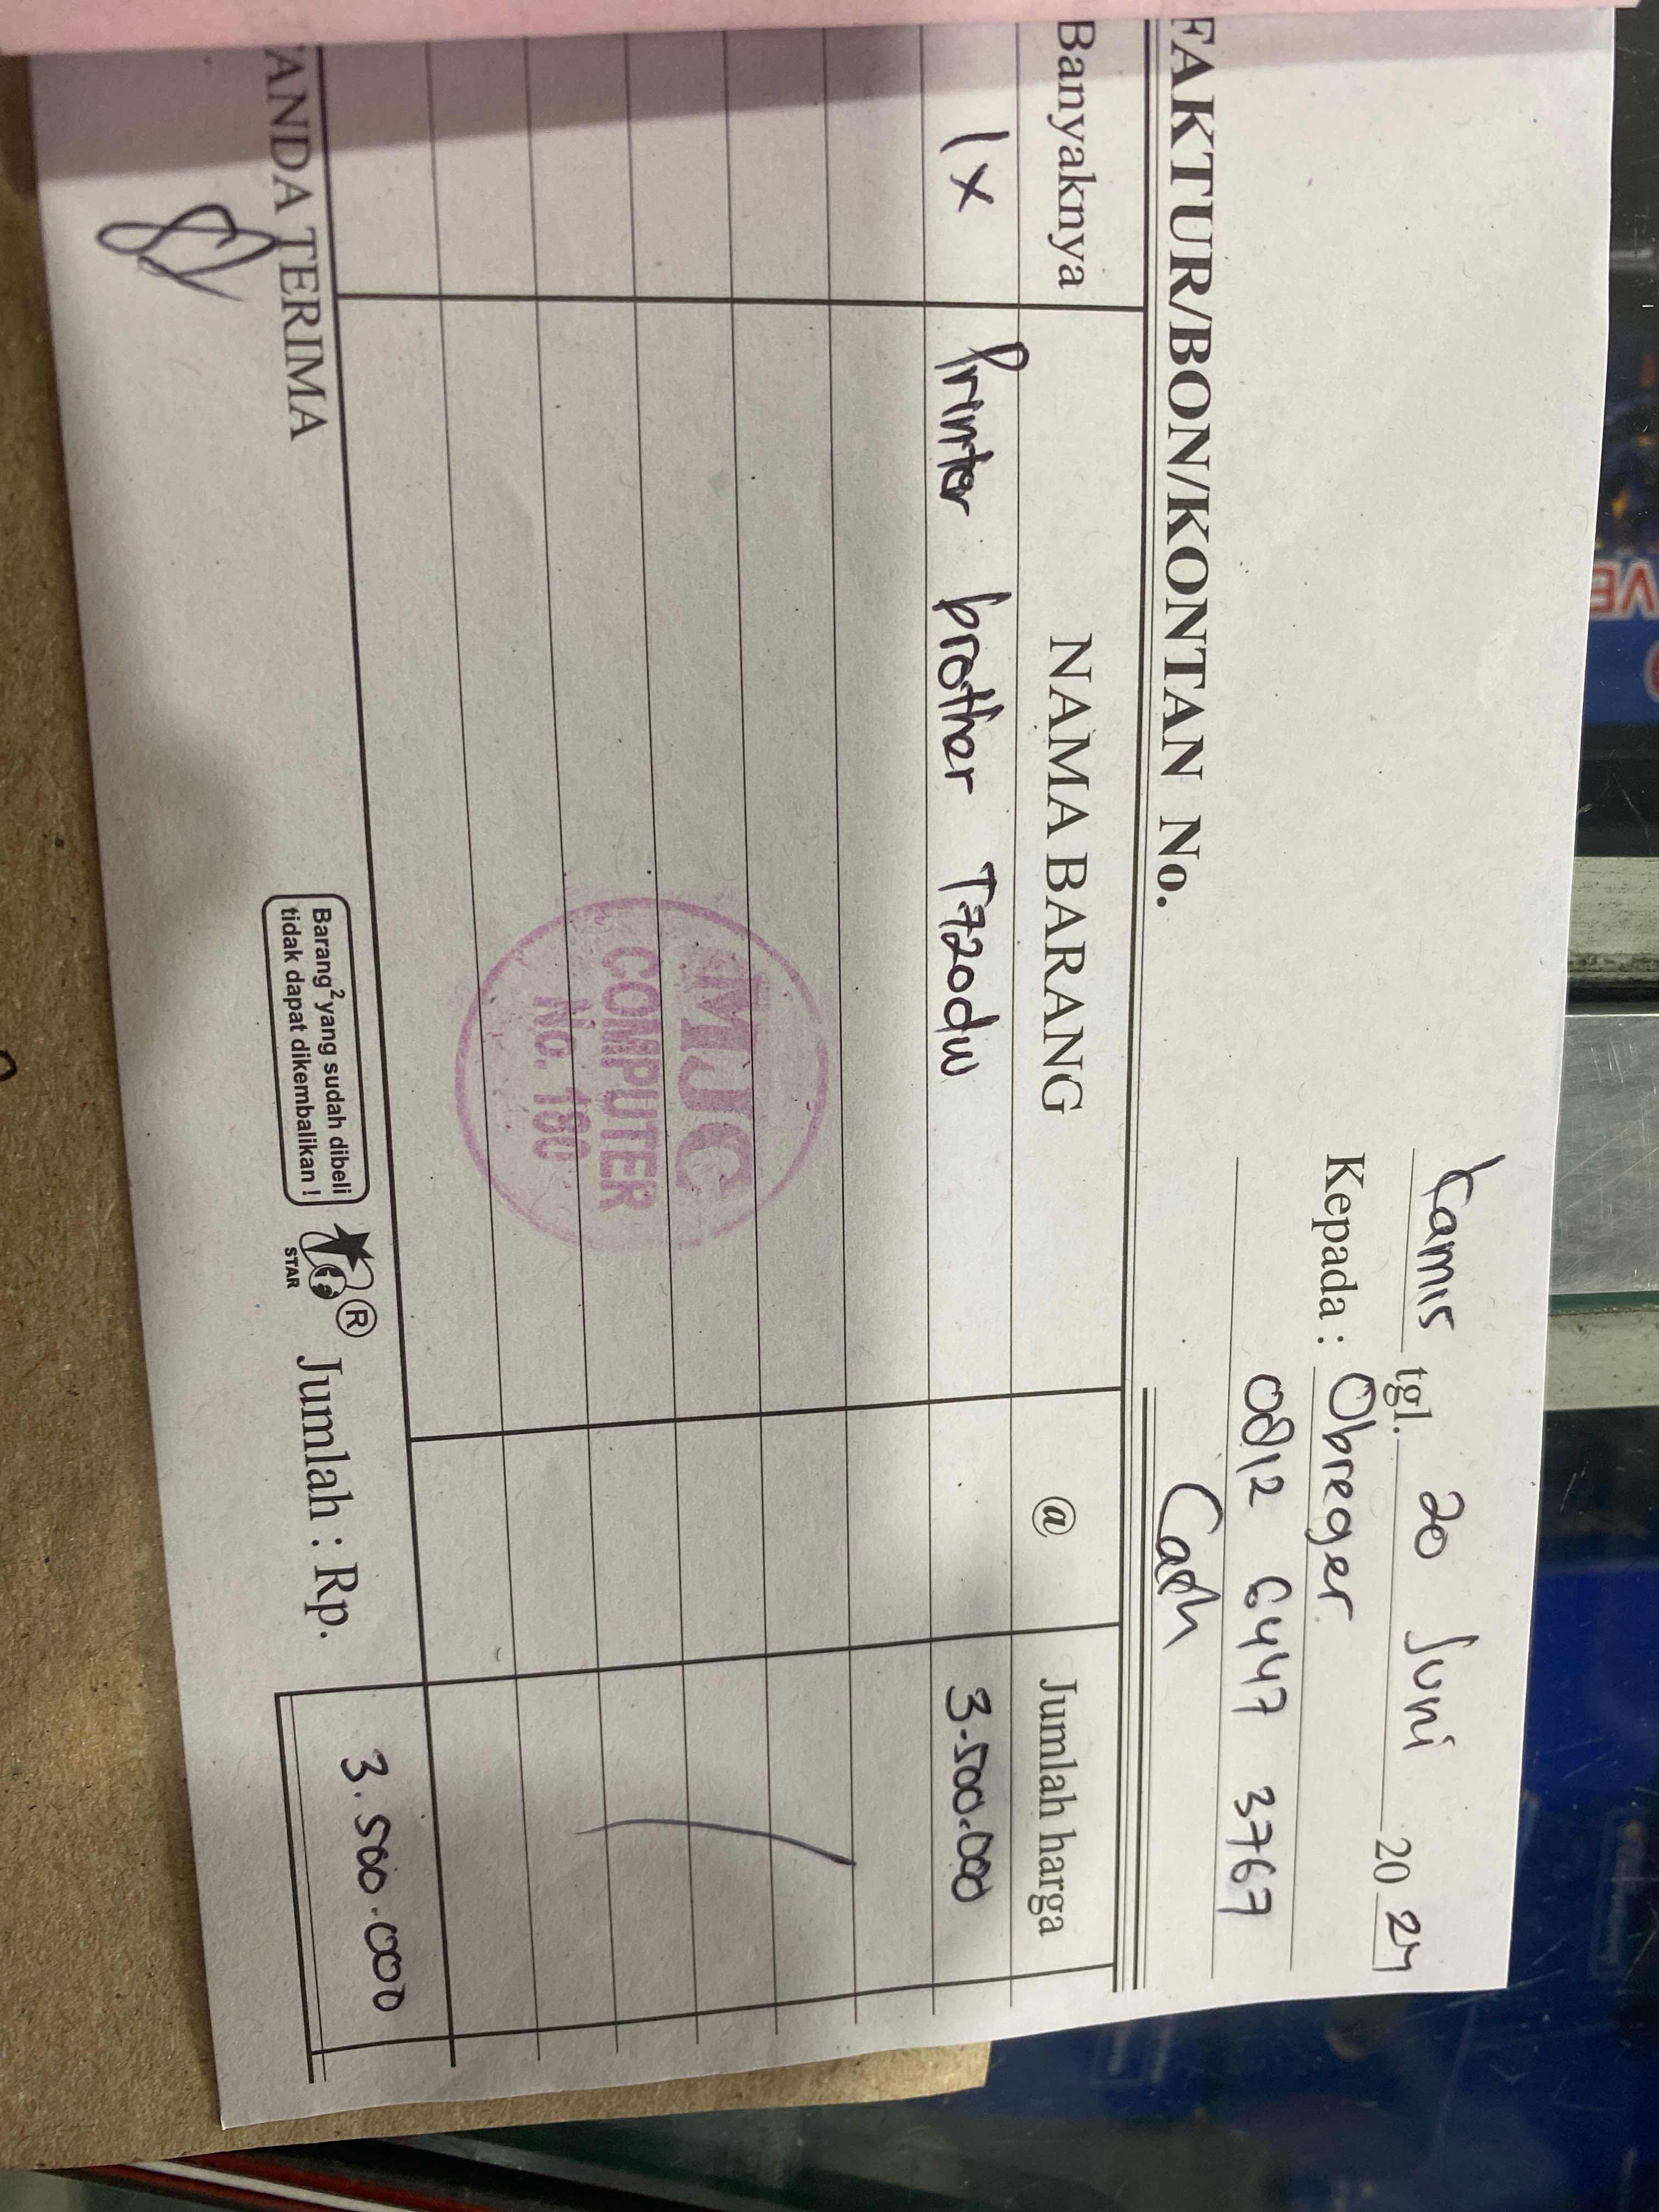 Kamis tgl. 20 Juni 20 24
Kepada : Obreger
0812 6447 3767
FAKTUR/BON/KONTAN No.
Cash
Banyaknya NAMA BARANG @ Jumlah harga
1 x Printer brother T720dw 3.500.000
MJC
COMPUTER
No. 180
TANDA TERIMA
Barang² yang sudah dibeli
tidak dapat dikembalikan !
STAR
®
Jumlah : Rp. 3.500.000
VE